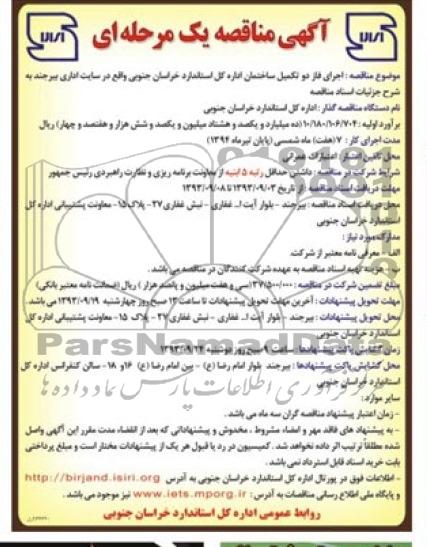 آگهی مناقصه یک مرحله ای
موضوع مناقصه : اجرای فاز دو تکمیل ساختمان اداره کل استاندارد خراسان جنوبی واقع در سایت اداری بیرجند به
شرح جزئیات اسناد مناقصه
نام دستگاه مناقصه گذار : اداره کل استاندارد خراسان جنوبی
برآورد اولیه : ۱۰/۱۸۰/۱۰۶/۷۰۴ (ده میلیارد و یکصد و هشتاد میلیون و یکصد و شش هزار و هفتصد و چهار) ریال
مدت اجرای کار : ۷ (هفت) ماه شمسی (پایان تیرماه ۱۳۹۴)
محل تامین اعتبار : اعتبارات عمرانی
شرایط شرکت در مناقصه : داشتن حداقل رتبه ۵ ابنیه از معاونت برنامه ریزی و نظارت راهبردی رئیس جمهور
مهلت دریافت اسناد مناقصه : از تاریخ ۱۳۹۳/۰۹/۰۳ تا ۱۳۹۳/۰۹/۰۸
محل دریافت اسناد مناقصه : بیرجند - بلوار آیت ا... غفاری - نبش غفاری ۲۷ - پلاک ۱۵ - معاونت پشتیبانی اداره کل
استاندارد خراسان جنوبی
مدارک مورد نیاز :
الف - معرفی نامه معتبر از شرکت.
ب - هزینه تهیه اسناد مناقصه به عهده شرکت کنندگان در مناقصه می باشد .
مبلغ تضمین شرکت در مناقصه : ۳۷/۵۰۰/۰۰۰ (سی و هفت میلیون و پانصد هزار) ریال (ضمانت نامه معتبر بانکی)
مهلت تحویل پیشنهادات : آخرین مهلت تحویل پیشنهادات تا ساعت ۱۳ صبح روز چهارشنبه ۱۳۹۳/۰۹/۱۹ می باشد .
محل تحویل پیشنهادات : بیرجند - بلوار آیت ا... غفاری - نبش غفاری ۲۷ - پلاک ۱۵ - معاونت پشتیبانی اداره کل
استاندارد خراسان جنوبی
زمان گشایش پاکت پیشنهادها : ساعت ۹ صبح روز دوشنبه ۱۳۹۳/۰۹/۲۴
محل گشایش پاکت پیشنهادها : بیرجند بلوار امام رضا (ع) - بین امام رضا (ع) ۱۶ و ۱۸ - سالن کنفرانس اداره کل
استاندارد خراسان جنوبی
سایر موارد :
- زمان اعتبار پیشنهاد مناقصه گران سه ماه می باشد .
- به پیشنهاد های فاقد مهر و امضاء مشروط ، مخدوش و پیشنهاداتی که بعد از انقضاء مدت مقرر این آگهی واصل
شده مطلقا ترتیب اثر داده نخواهد شد. کمیسیون در رد یا قبول هر یک از پیشنهادات مختار است و مبلغ پرداختی
بابت خرید اسناد قابل استرداد نمی باشد.
- اطلاعات فوق در پورتال اداره کل استاندارد خراسان جنوبی به آدرس http://birjand.isiri.org
و پایگاه ملی اطلاع رسانی مناقصات به آدرس : www.iets.mporg.ir نیز موجود می باشد .
روابط عمومی اداره کل استاندارد خراسان جنوبی
ParsNamadData